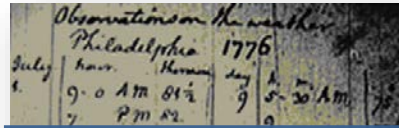 Observations on the weather
Philadelphia 1776
July hour. Thermom day h m
1. 9-0 AM 81½ 9 5-30 AM.
7 PM 82